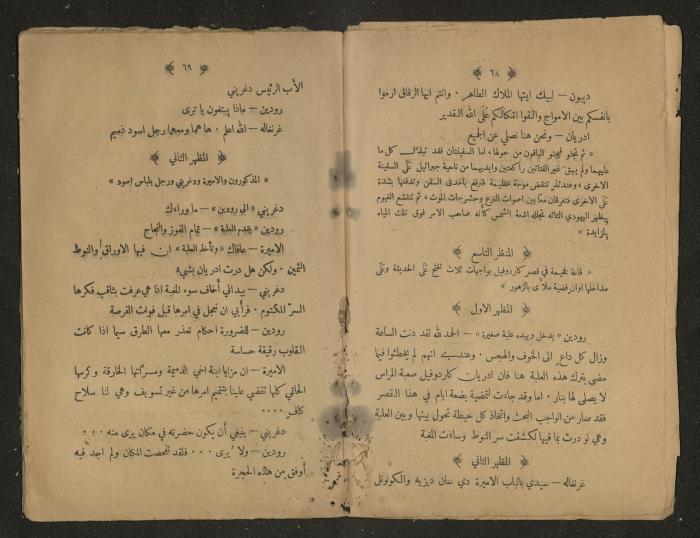 ﴿ ٦٨ ﴾
ديبون – لبيك ايتها الملاك الطاهر . وانتم ايها الرفاق ارموا
بانفسكم بين الامواج والقوا اتكالكم عَلَى الله القدير
ادريان – ونحن هنا نصلي عن الجميع
« ثم تجثو فيجثو الباقون من حولها ، اما السفينتان فقد تبدل كل ما
عليهما ولم يبق غير الفتاتين راكعتين وايديهما من ناحية جبرائيل عَلَى السفينة
الاخرى ، وعندئذ تنقض موجة عظيمة فترفع باحدى السفن وتدفعها بشدة
عَلَى الاخرى فتغرقان معًا بين اصوات الفزع وحشرجات الموت ، ثم تنقشع الغيوم
ويظهر اليهودي التائه تجلله اشعة الشمس كأنه صاحب الامر فوق تلك المياه
المزايدة »
﴿ المنظر التاسع ﴾
« قاعة فخيمة في قصر كاردوفيل بواجهات ثلاث تفتح عَلَى الحديقة وعَلَى
مداخلها اوان فضية ملآى بالزهور »
﴿ المظهر الاول ﴾
رودين « يدخل وبيده علبة صغيرة » – الحمد لله لقد دنت الساعة
وزال كل داعٍ الى الخوف والهجس . وعندسيه انهم لم يخطئوا فيما
مضى بترك هذه العلبة هنا فان ادريان كاردوفيل صعبة المراس
لا يصلى لها بنار . اما وقد جاءت لتمضية بضعة ايام في هذا القصر
فقد صار من الواجب البحث واتخاذ كل حيطة تحول بينها وبين العلبة
وهي لو درت بما فيها لكشفت سر النوط وساءت المغبة
﴿ المظهر الثاني ﴾
غرنفاله – سيدي بالباب الاميرة دي سنان ديزيه والكولونل
﴿ ٦٩ ﴾
الأب الرئيس دغريني
رودين – ماذا يبتغون يا ترى
غرنفاله – الله اعلم . ها هما ومعهما رجل اسود ذميم
﴿ المظهر الثاني ﴾
« المذكورون والاميرة ودغريني ورجل بلباس اسود »
دغريني « الى رودين » – ما وراءك
رودين « يقدم العلبة » – تمام الفوز والنجاح
الاميرة – عافاك « وتأخذ العلبة » ان فيها الاوراق والنوط
الثمين . ولكن هل درت ادريان بشيء
دغريني – بيد اني أخاف سوء المغبة اذا هي عرفت بثاقب فكرها
السرّ المكتوم . فرأيي ان نعجل في امرها قبل فوات الفرصة
رودين – للضرورة احكام تعذر معها الطرق سيما اذا كانت
القلوب رقيقة حساسة
الاميرة – ان مزايا ابنة اخي الذميمة ومسرّاتها الخارقة وكرمها
الحاتمي كلها تقضي علينا بتتميم امرها من غير تسويف وهي لنا سلاح
كافٍ ....
دغريني – ينبغي أن يكون حضرته في مكان يرى منه ...
رودين – ولا يُرى ... فلقد تفحصت المكان ولم اجد فيه
أوفق من هذه الحجرة